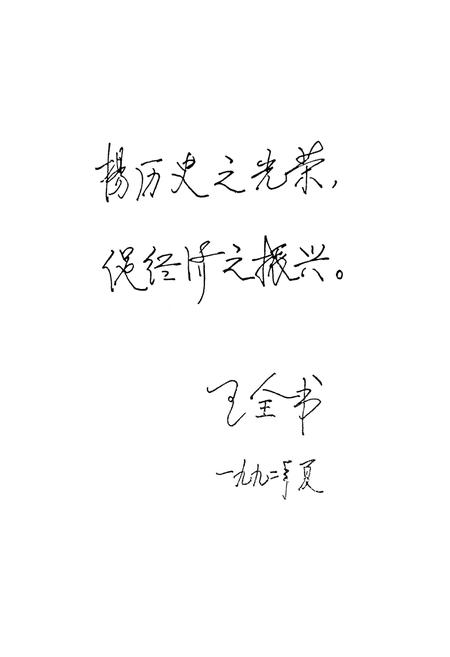 揚历史之光荣，
促经济之振兴。
王全书
一九九二年夏